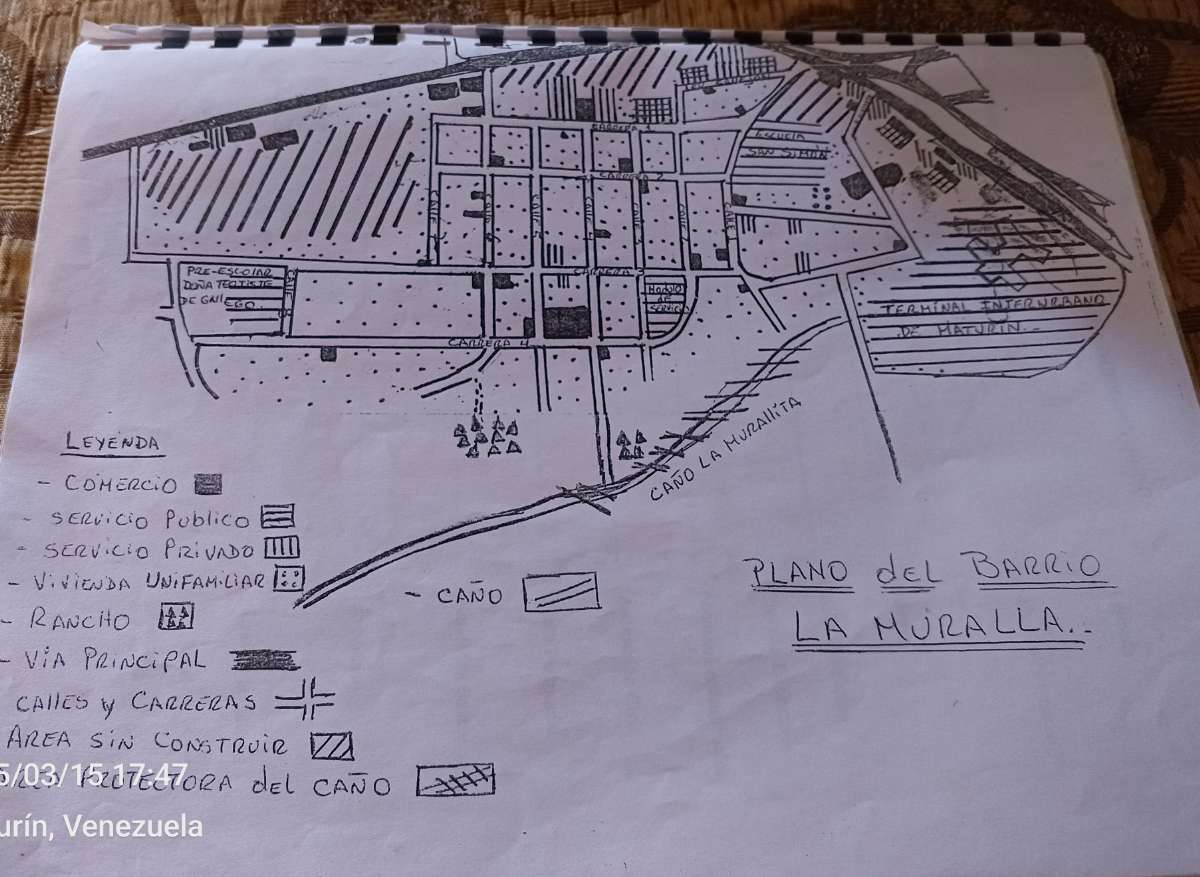 CARRERA 1
ESCUELA
SAN SIMÓN
CARRERA 2
CALLE
CALLE
CALLE
CALLE
CARRERA 3
PRE-ESCOLAR
DOÑA TEOTISTE
DE GALLEGO.
MODULO
DE
SERVICIO
TERMINAL INTERURBANO
DE MATURÍN..
CARRERA 4
CAÑO LA MURALLITA
LEYENDA
- COMERCIO
- SERVICIO PÚBLICO
- SERVICIO PRIVADO
- VIVIENDA UNIFAMILIAR
- RANCHO
- VÍA PRINCIPAL
CALLES y CARRERAS
AREA SIN CONSTRUIR
PROTECTORA del CAÑO
- CAÑO
PLANO del BARRIO
LA MURALLA..
5/03/15 17:47
urín, Venezuela